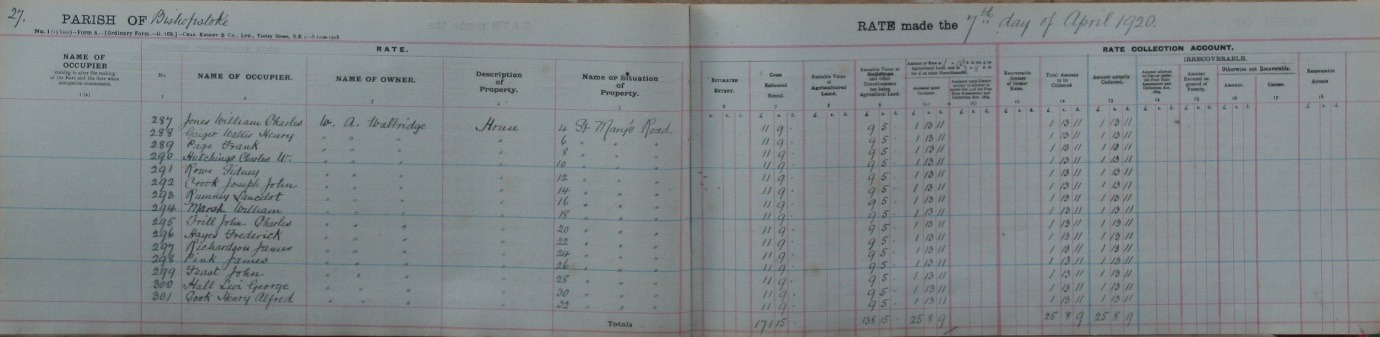 27. PARISH OF Bishopstoke RATE made the 7th day of April 1920.
RATE. RATE COLLECTION ACCOUNT.
NAME OF OCCUPIER
No. NAME OF OCCUPIER. NAME OF OWNER. Description of Property. Name or Situation of Property. ESTIMATED EXTENT. Gross Estimated Rental. Rateable Value of Agricultural Land. Total Amount to be Collected Amount actually Collected. IRRECOVERABLE.
Otherwise not Recoverable.
Amount. Causes.
287 Jones William Charles W. A. Walbridge House 4 St Mary's Road 11 9 - 9 5 - 1 13 11 1 13 11 1 13 11
288 Walter Henry " " " " 6 " " " 11 9 - 9 5 - 1 13 11 1 13 11 1 13 11
289 Page Frank " " " " 8 " " " 11 9 - 9 5 - 1 13 11 1 13 11 1 13 11
290 Hutchings Charles W. " " " " 10 " " " 11 9 - 9 5 - 1 13 11 1 13 11 1 13 11
291 Rowe " " " " 12 " " " 11 9 - 9 5 - 1 13 11 1 13 11 1 13 11
292 Crook Joseph John " " " " 14 " " " 11 9 - 9 5 - 1 13 11 1 13 11 1 13 11
293 Rumney Lancelot " " " " 16 " " " 11 9 - 9 5 - 1 13 11 1 13 11 1 13 11
294 Marsh William " " " " 18 " " " 11 9 - 9 5 - 1 13 11 1 13 11 1 13 11
295 John Charles " " " " 20 " " " 11 9 - 9 5 - 1 13 11 1 13 11 1 13 11
296 Hayes Frederick " " " " 22 " " " 11 9 - 9 5 - 1 13 11 1 13 11 1 13 11
297 Richardson James " " " " 24 " " " 11 9 - 9 5 - 1 13 11 1 13 11 1 13 11
298 Pink James " " " " 26 " " " 11 9 - 9 5 - 1 13 11 1 13 11 1 13 11
299 Feast John " " " " 28 " " " 11 9 - 9 5 - 1 13 11 1 13 11 1 13 11
300 Hall Levi George " " " " 30 " " " 11 9 - 9 5 - 1 13 11 1 13 11 1 13 11
301 Cook Henry Alfred " " " " 32 " " " 11 9 - 9 5 - 1 13 11 1 13 11 1 13 11
Totals 171 15 - 138 15 - 25 8 9 25 8 9 25 8 9